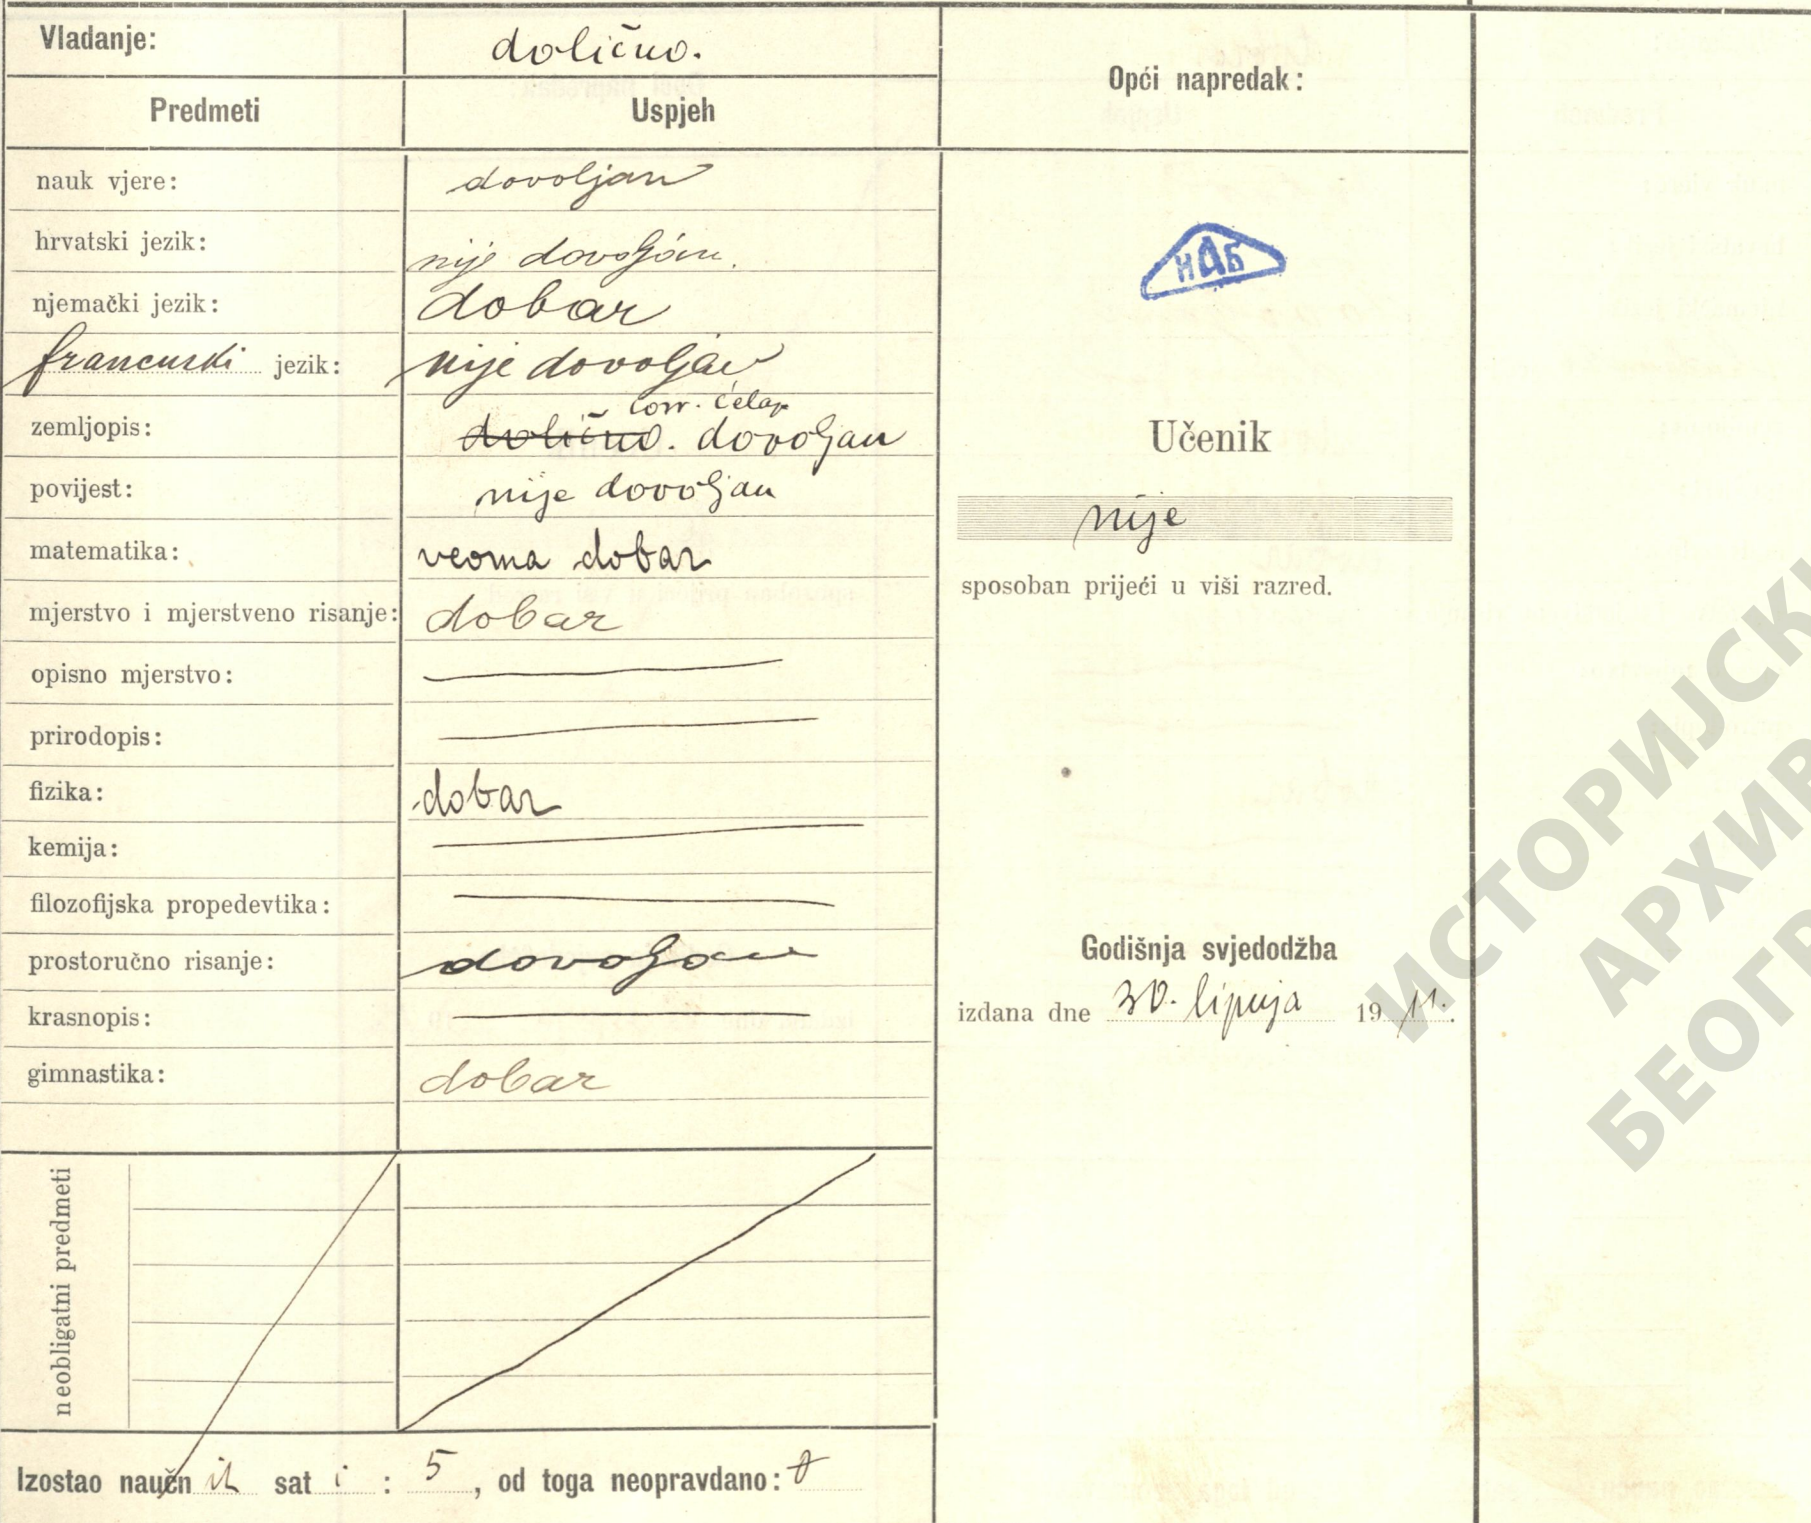 Vladanje: dolično.
Predmeti Uspjeh
nauk vjere: dovoljan
hrvatski jezik: nije dovoljan.
njemački jezik: dobar
francuski jezik: nije dovoljan
corr. Ćelap
zemljopis: dolično. dovoljan
povijest: nije dovoljan
matematika: veoma dobar
mjerstvo i mjerstveno risanje: dobar
opisno mjerstvo:
prirodopis:
fizika: dobar
kemija:
filozofijska propedevtika:
prostoručno risanje: dovoljan
krasnopis:
gimnastika: dobar
neobligatni predmeti
Izostao naučn ih sat i : 5, od toga neopravdano: 0
Opći napredak:
ИАБ
Učenik
nije
sposoban prijeći u viši razred.
Godišnja svjedodžba
izdana dne 30. lipnja 19 11.
ИСТОРИЈСКИ
АРХИВ
БЕОГР